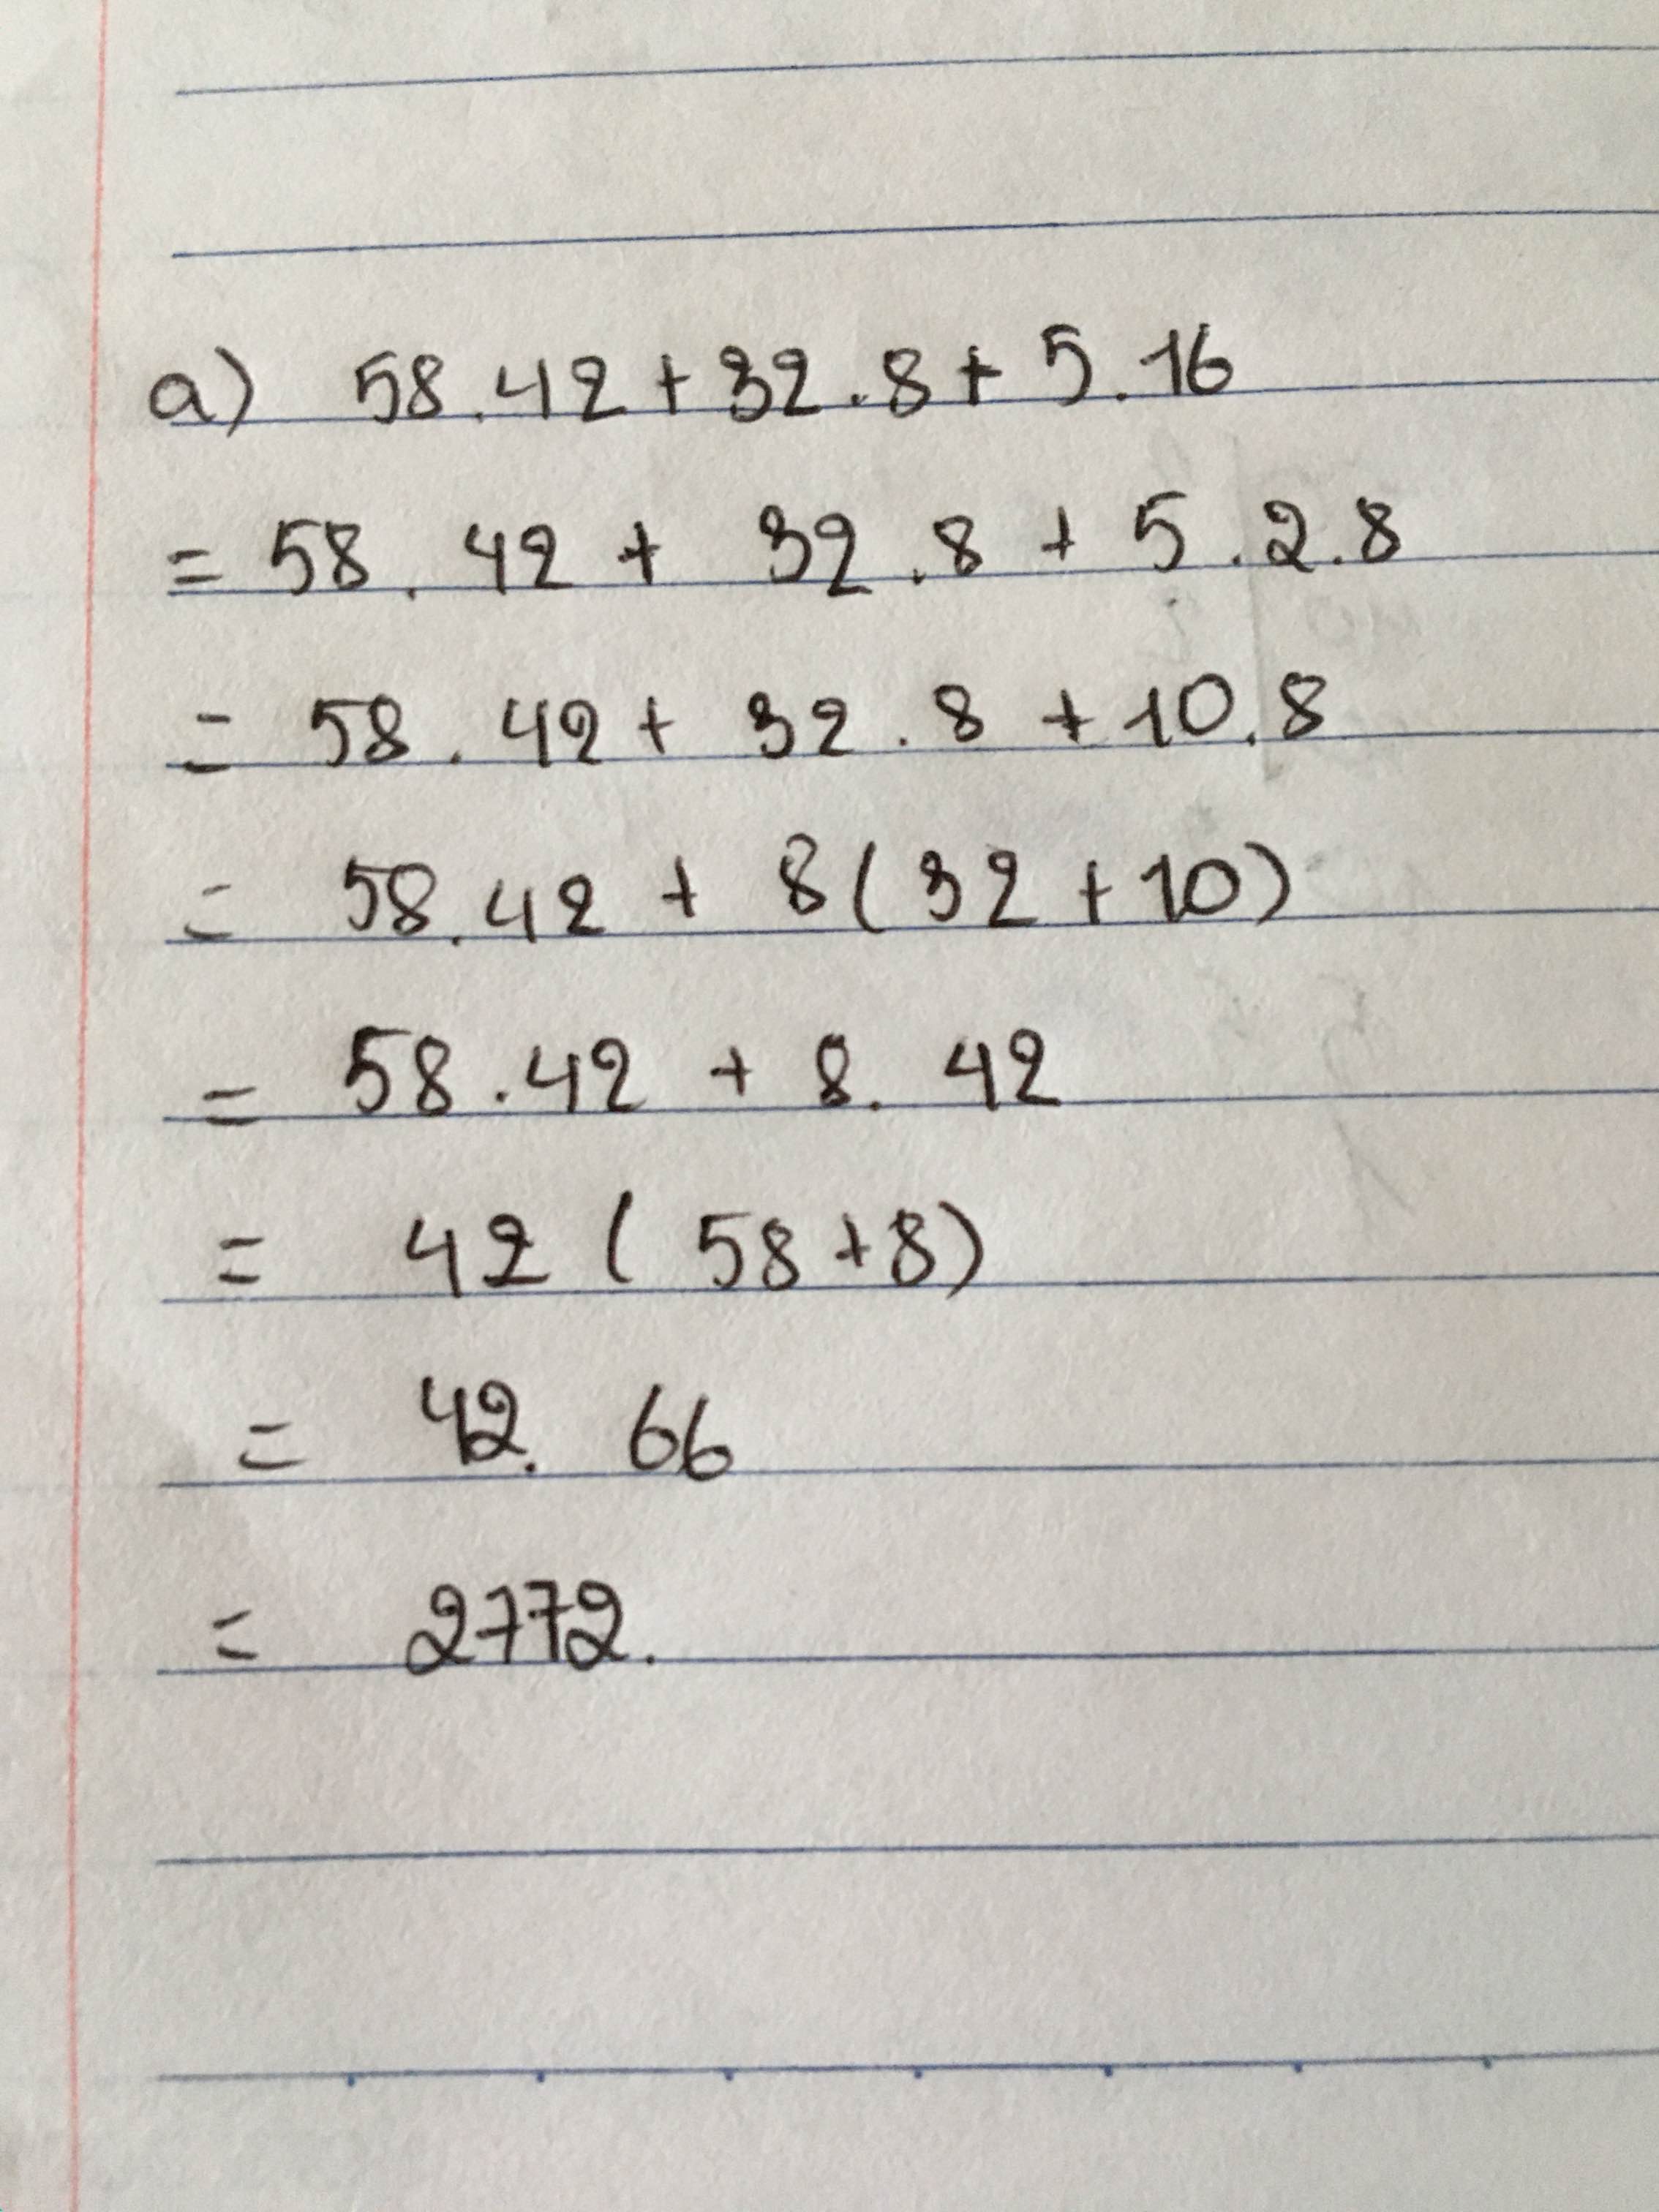 a) 58.42 + 32.8 + 5.16
= 58.42 + 32.8 + 5.2.8
= 58.42 + 32.8 + 10.8
= 58.42 + 8(32 + 10)
= 58.42 + 8.42
= 42(58 + 8)
= 42.66
= 2772.